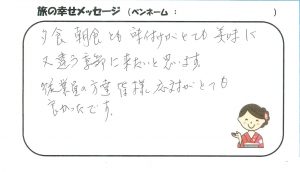 旅の幸せメッセージ（ペンネーム：　　　　　）
夕食 朝食 とも 味付けが とても 美味に
又違う季節に来たいと思います
従業員の方達 皆様 応対がとても
良かったです。